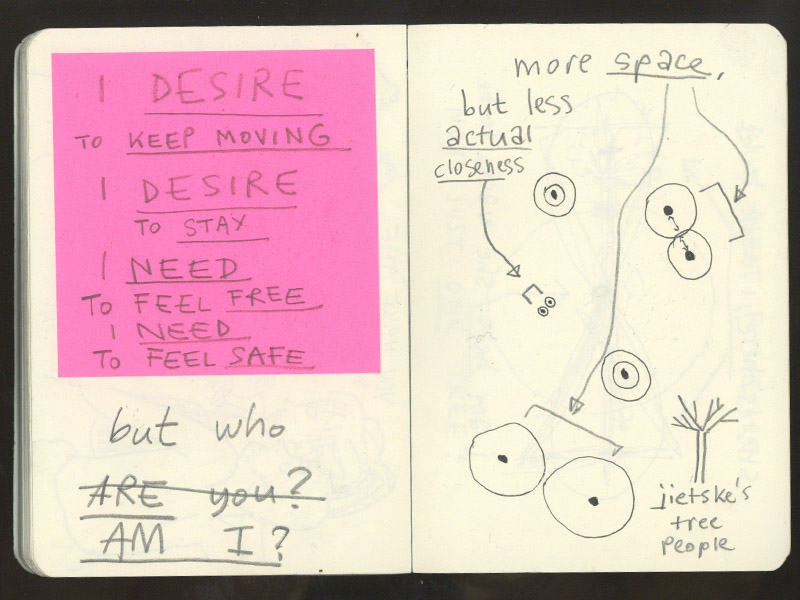 I DESIRE
TO KEEP MOVING
I DESIRE
TO STAY
I NEED
TO FEEL FREE
I NEED
TO FEEL SAFE
but who
ARE you?
AM I?
more space,
but less
actual
closeness
jietske's
tree
people